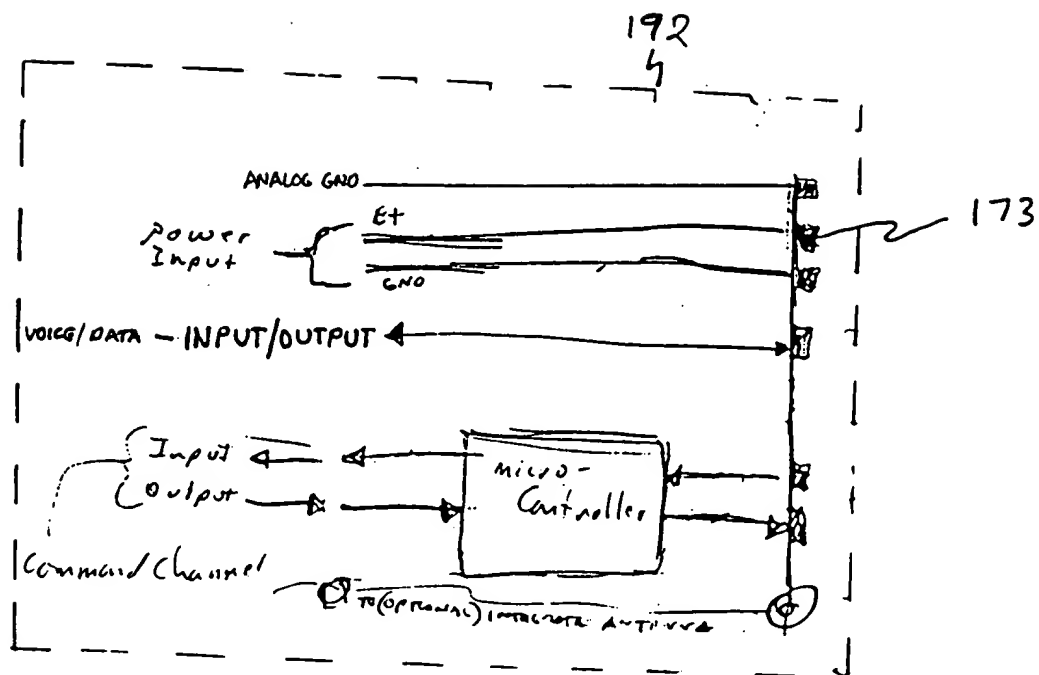 192
ANALOG GND
173
E+
Power
Input
GND
VOICE/DATA - INPUT/OUTPUT
Input
Output
micro-
Controller
Command Channel
TO (OPTIONAL) INTEGRATE ANTENNA